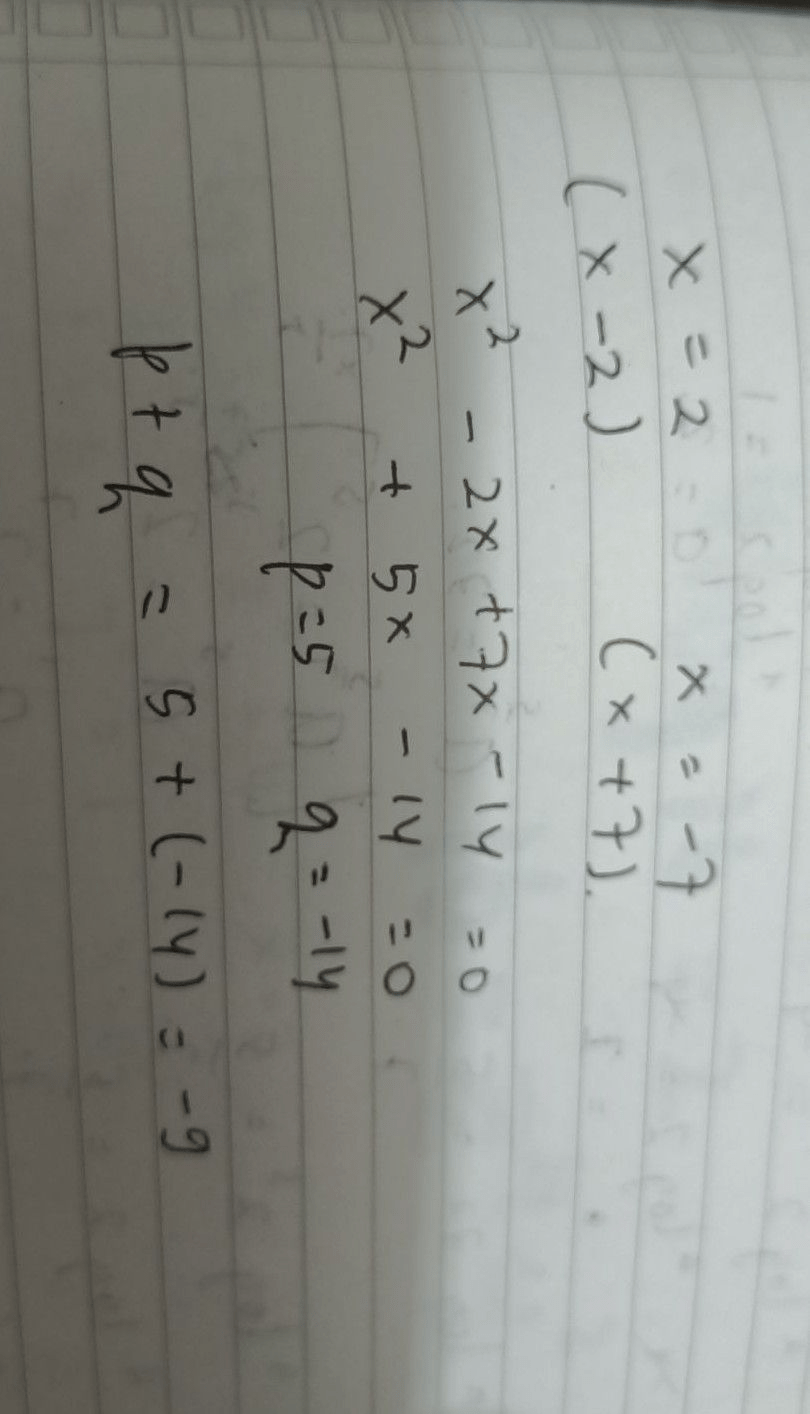 x = 2 x = -7
(x - 2) (x + 7).
x² - 2x + 7x - 14 = 0
x² + 5x - 14 = 0
p = 5 q = -14
p + q = 5 + (-14) = -9